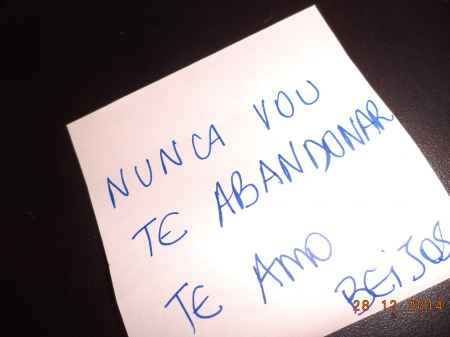 NUNCA VOU
TE ABANDONAR
TE AMO
BEiJOS
28 12 2014